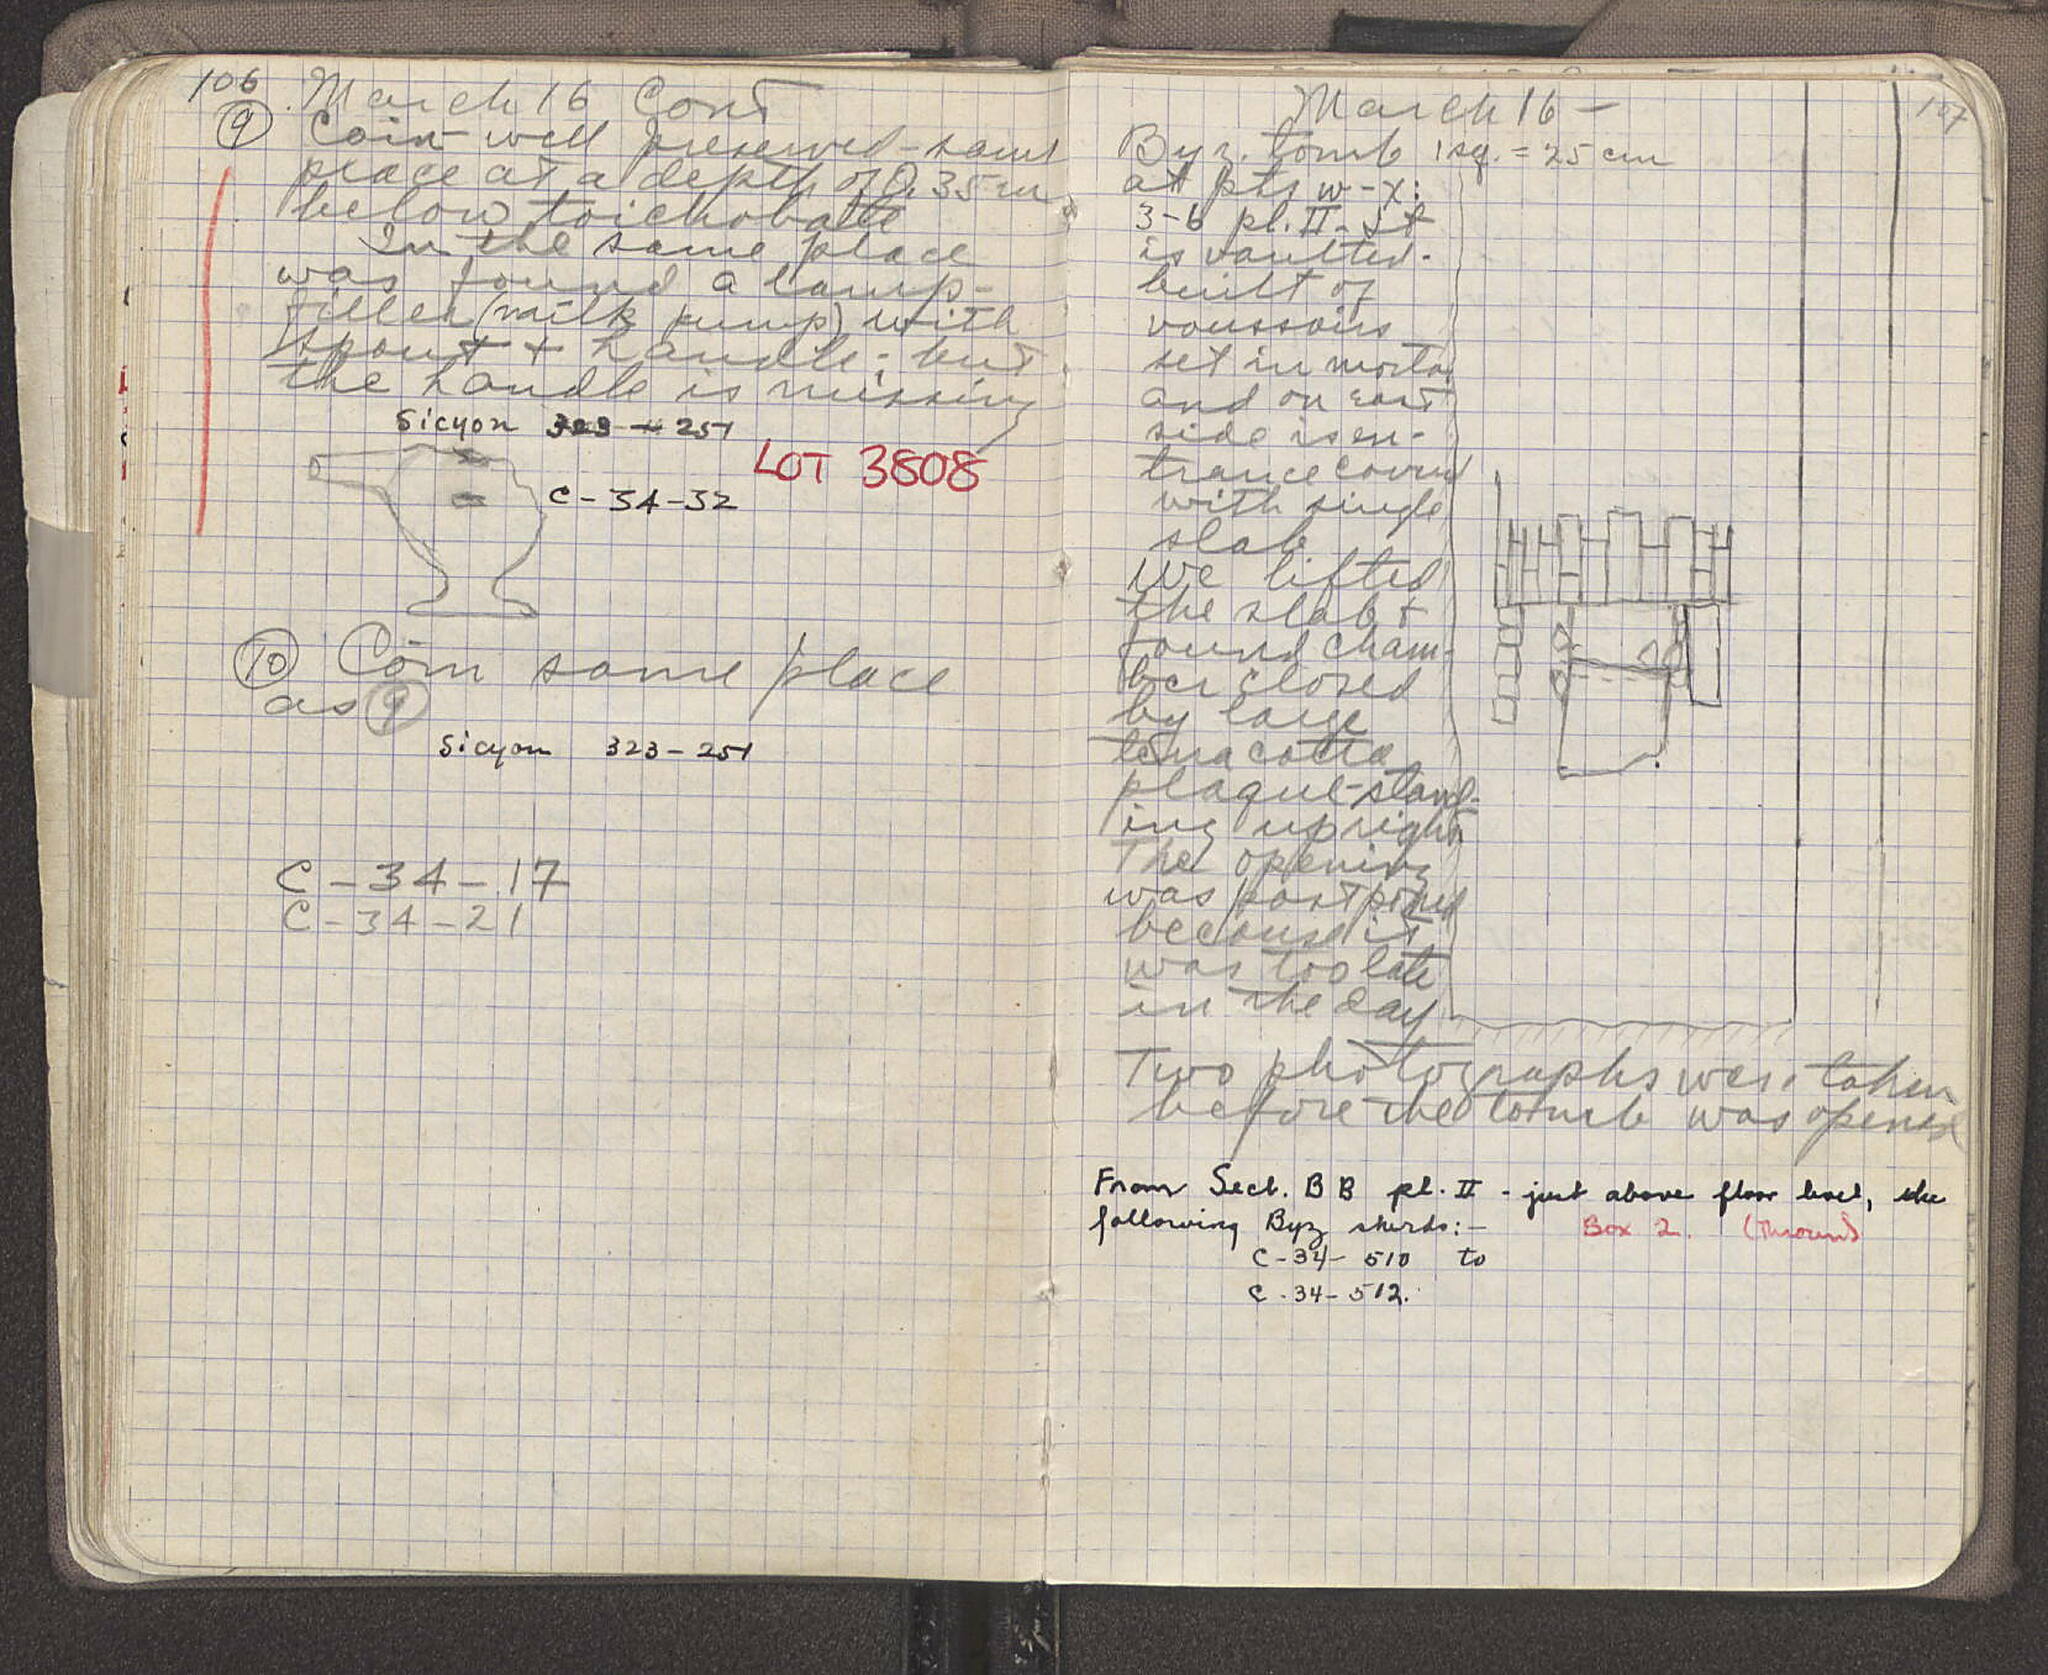 106 March 16 Cont
⑨ Coin well preserved - same
place at a depth of 0.35 m
below toichobate
In the same place
was found a lamp-
filler (milk pump) with
spout + handle; but
the handle is missing
Sicyon 323 - 251
LOT 3808
C-34-32
⑩ Coin same place
as ⑨
Sicyon 323-251
C-34-17
C-34-21
107
March 16 -
Byz. tomb 1 sq. = 25 cm
at pts w-x:
3-6 pl. II - It
is vaulted -
built of
voussoirs
set in mortar
and on east
side is en-
trance covered
with single
slab
We lifted
the slab +
found cham-
ber closed
by large
terracotta
plaque - stand-
ing upright
The opening
was postponed
because it
was too late
in the day
Two photographs were taken
before the tomb was opened
From Sect. BB pl. II - just above floor level, the
following Byz sherds:-
Box 2. (Thrown)
C-34-510 to
C-34-512.